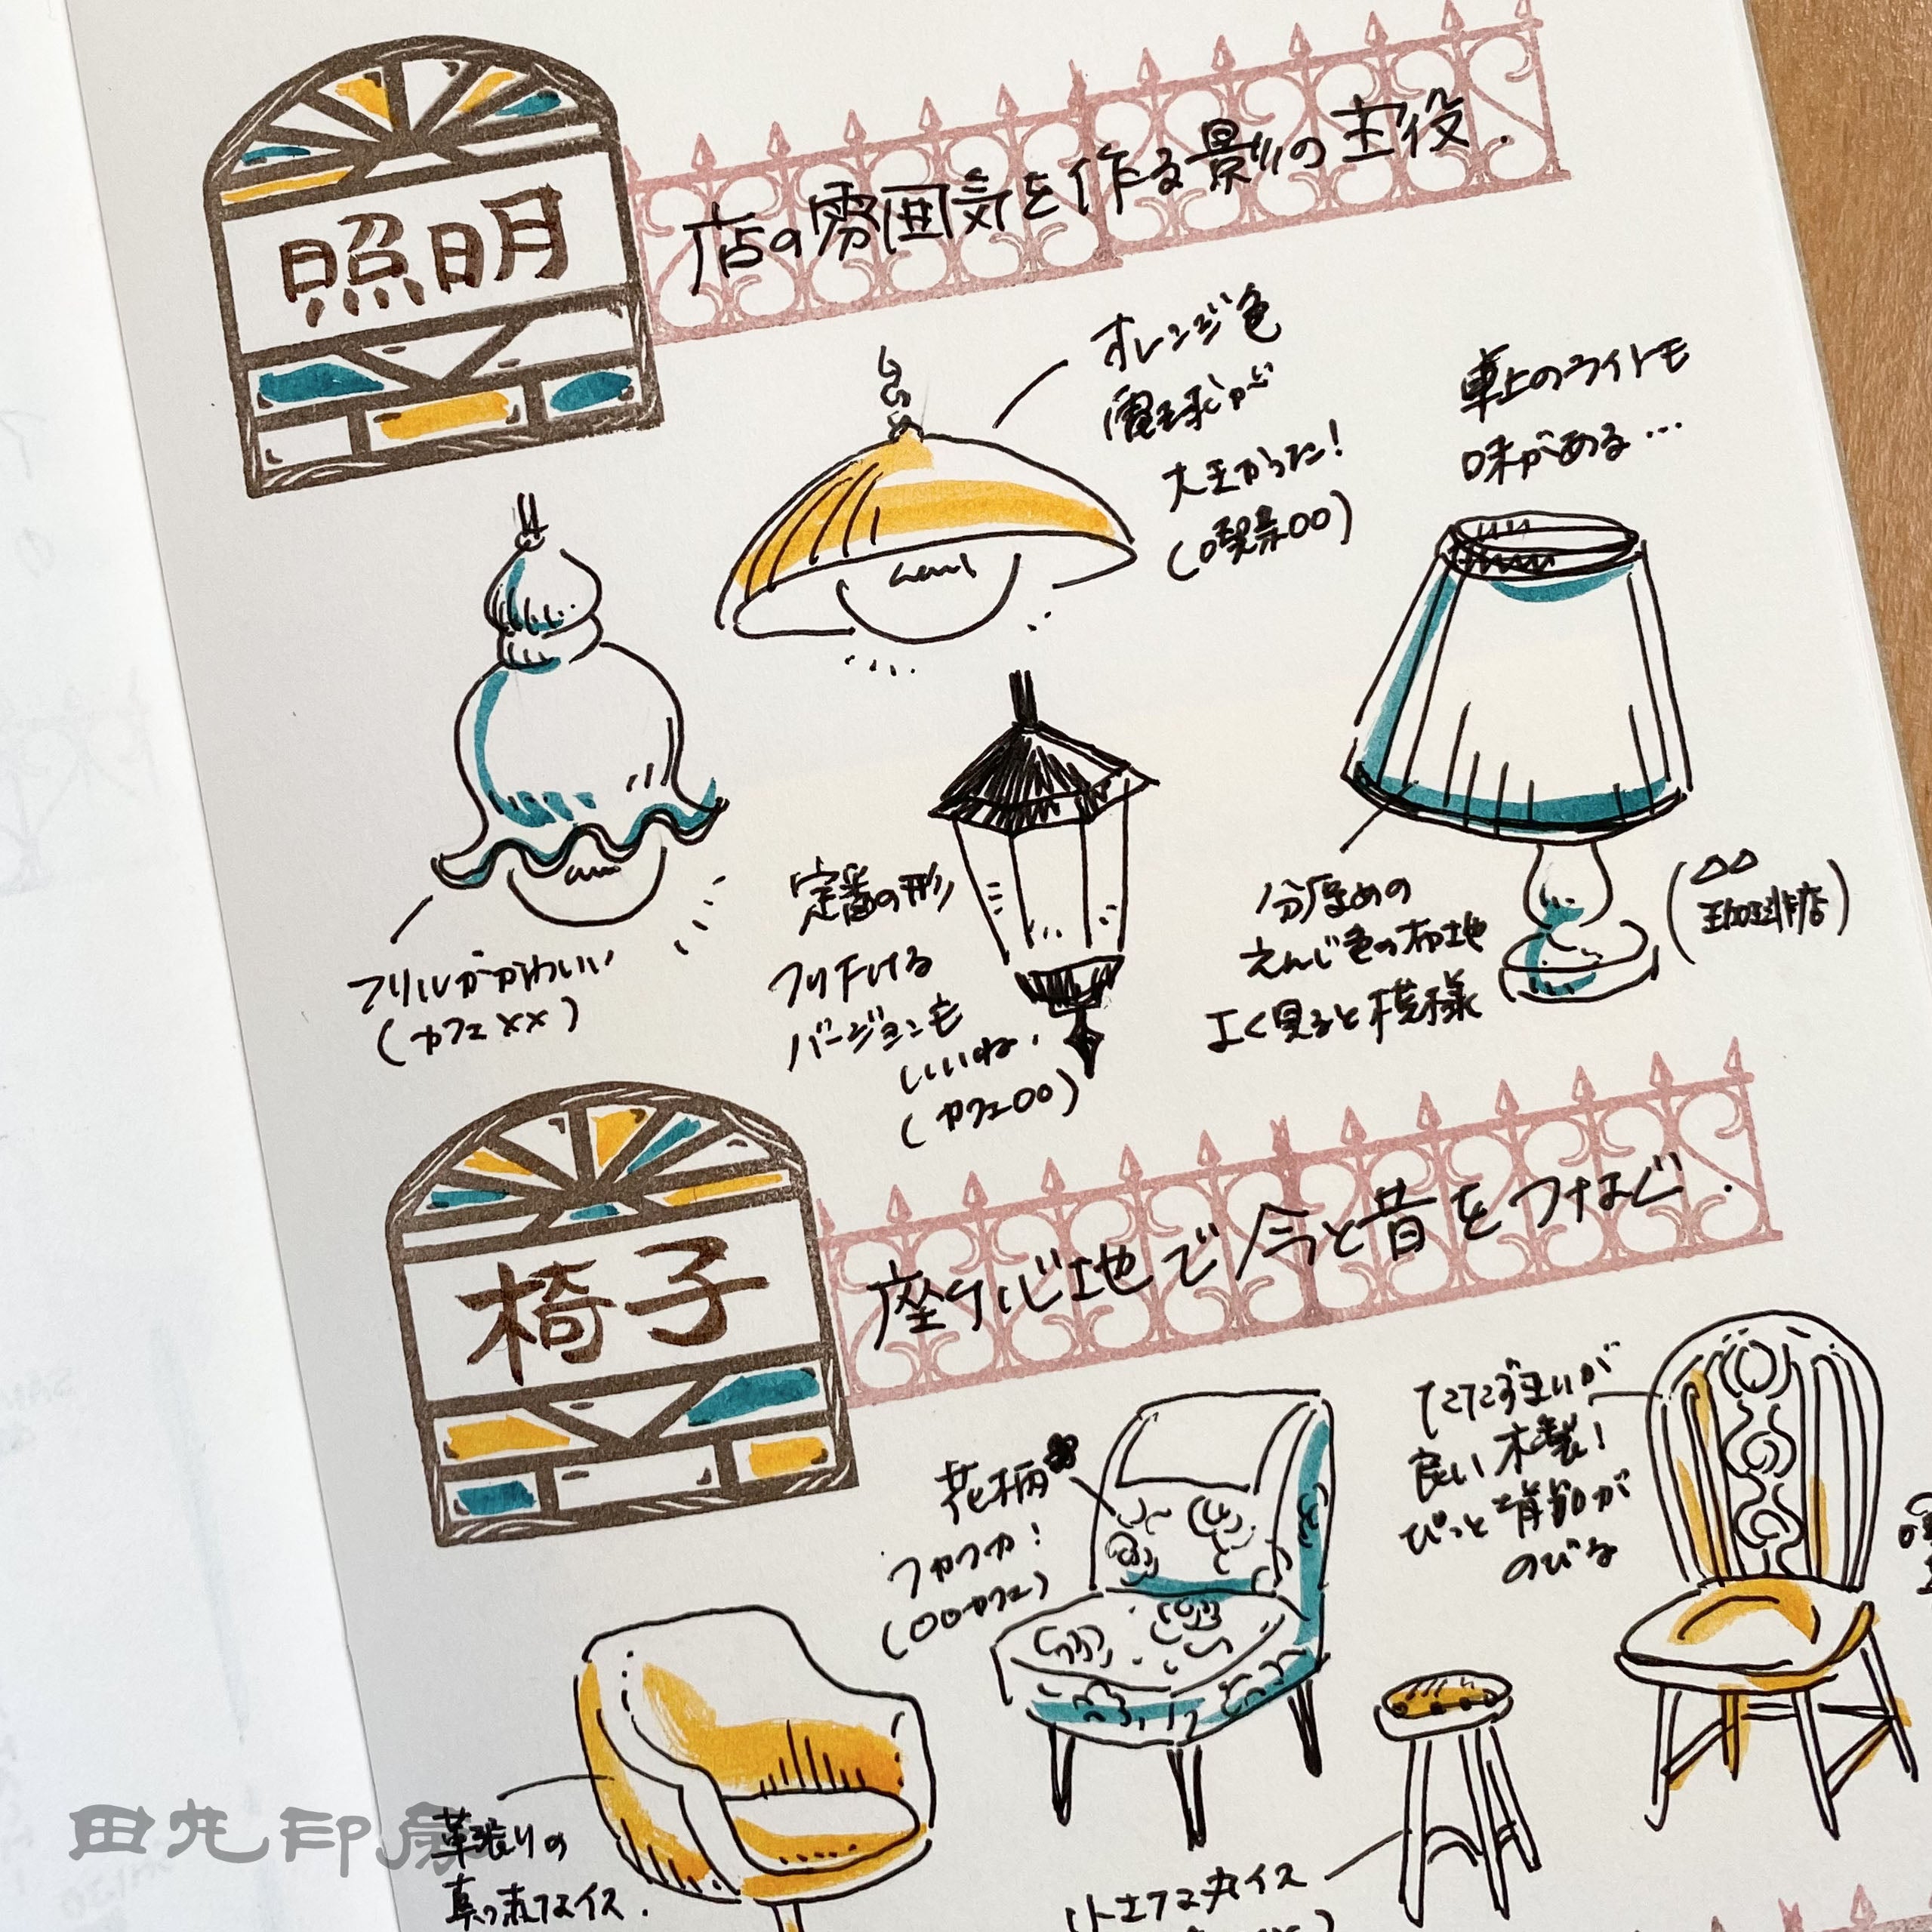 照明
店の雰囲気を作る影の主役.
オレンジ色
電球が
大きかった!
(喫茶○○)
卓上のライトも
味がある…
フリルがかわいい
(カフェ××)
定番の形
つり下げる
バージョンも
いいね.
(カフェ○○)
分厚めの
えんじ色の布地
よく見ると模様
(△△
珈琲店)
椅子
座り心地で今と昔をつなぐ.
花柄
フカフカ!
(○○カフェ)
たたずまいが
良い木製!
ぴっと背筋が
のびる
革張りの
真っ赤なイス.
小さな丸イス
田丸印房